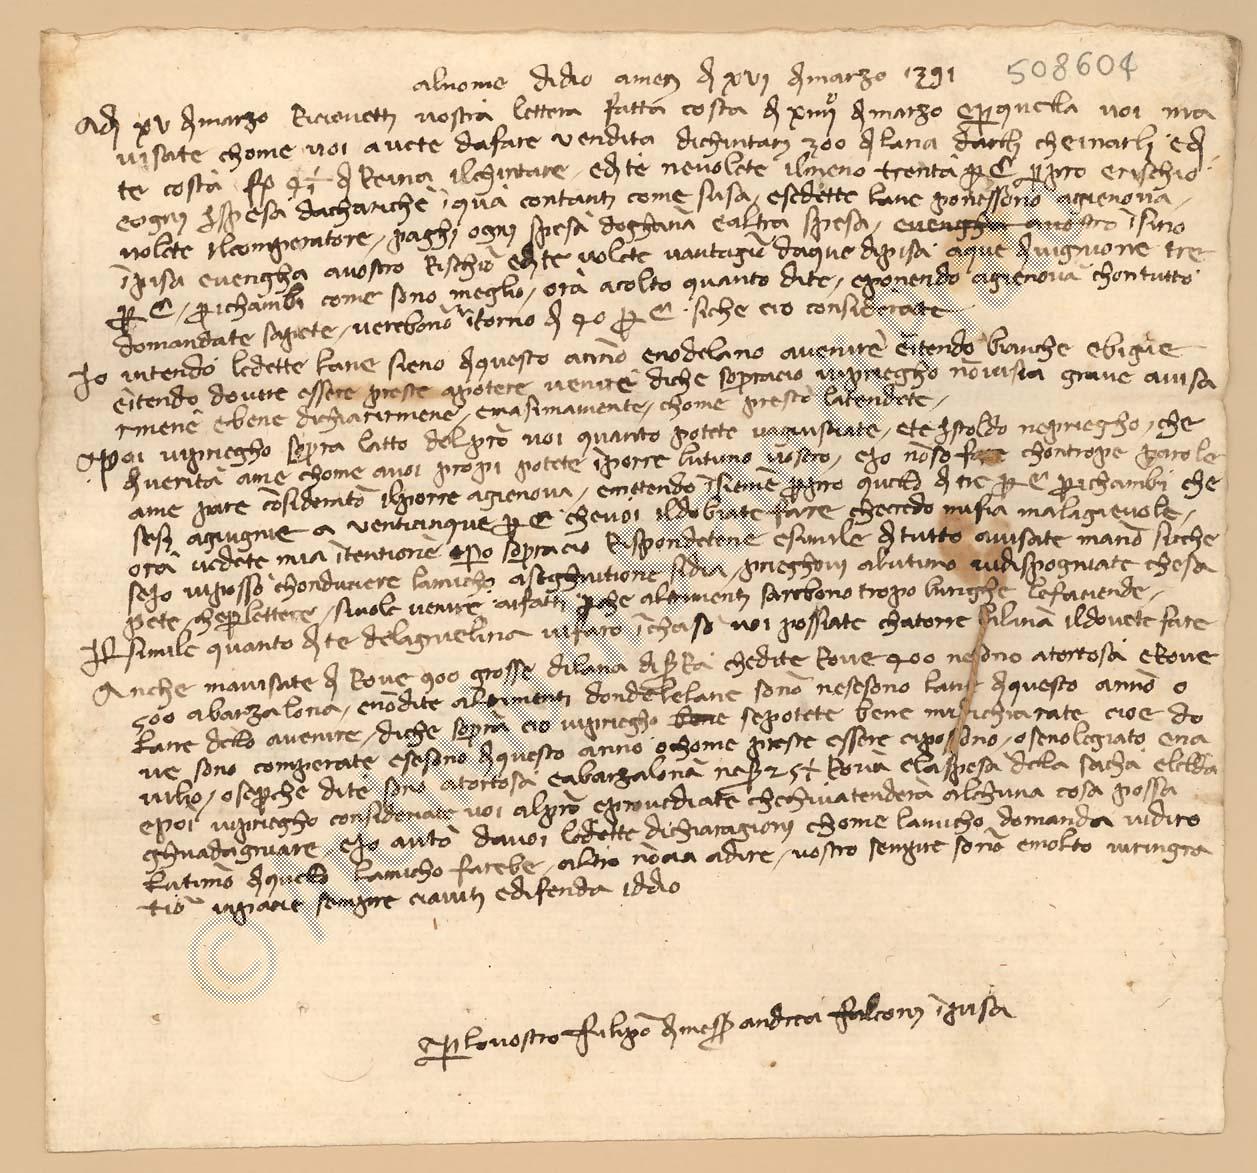 508604
al nome di dio amen di xvi di marzo 1391
Adi xv di marzo Ricievetti vostra lettera fatta costa di xiiii di marzo e per quella voi m'a
visate chome voi avete da fare vendita di chintari 300 di lana darli che inarli e di
te costa f. di Reina il chintare, e di te ne volete il meno trenta per C per pro e rischio
e ogni ispesa da charichè î qua contanti come susa, e se dette lane ponessono a gienova,
volete il comperatore, paghi ogni spesa doghana e altra spesa, e vengha a nostro isino
î pisa e vengha a vostro Rischio e di te volete vantagio da que di pisa a que di vignione tre
per C, per i chambi come sono meglio, ora acolto quanto dite, e ponendo a gienova chon tutto
domandate sapete, verebono îtorno di 40 per C siche cio considerate
Io intendo le dette lane sieno di questo anno e no de l'ano avenire e îtendo bianche e bigie
e îtendo dovere essere preste a potere venire di che sopra cio vi priegho no vi sia grave avisa
rmene e bene dichiarirmene, e masimamente, chome presto l'atendete,
Poi vi priegho sopra l'atto del pro voi quanto potete v'aviusiate, e te Istoldo ne priegho, che
di verita a me chome a voi propi potete îporre l'utimo vostro, e Io no so fare chon trope parole
a me pare considerato il porre a gienova, e metendo îsieme per pro quello di tre per C per i chambi che
sesi agiugnie a venticinque per C che voi il dobiate fare che credo mi fia malagievole,
ora vedete mia îtentione e pero sopra cio Rispondetene e simile di tutto avisate mano siche
se Io vi posso chonduciere l'amicho a seghuitione si dia, prieghovi al utimo vi dispogniate che sa
pete che per lettere, si vole venire a' fatti per che altrimenti sarebono tropo lunghe le faciende,
E simile quanto di te de l'agnielina vi faro î chaso voi possiate chatorre si lina il dovete fare
Anche m'avisate di Rove 900 grosse di lana di che dite Rove 400 ne sono a tortosa e Rove
500 a barzalona, e no dite altrimenti donde le lane sono ne se sono lane di questo anno o
lane dello avenire, di che sopra cio vi priegho se potete bene mi dichiarate cioe do
ve sono comperate e se sono di questo anno o chome preste essere ci possono, o se no legiato e na
vilio, o se per che dite sono a tortosa e a barzalona ne Rova e la spesa de la sacha e lelda
e poi vi priegho considerate voi al pro e provediate che chi v'atendera alchuna cosa possa
ghuadagniare, e Io auto da voi le dette dichiaragioni chome l'amicho domanda vi diro
l'utimo di quello l'amicho farebe, altro no a a dire, vostro sempre sono e molto vi ringra
tio vi piacie sempre cianti e difenda iddio
Per lo vostro filipo di messer andrea falconi î pisa